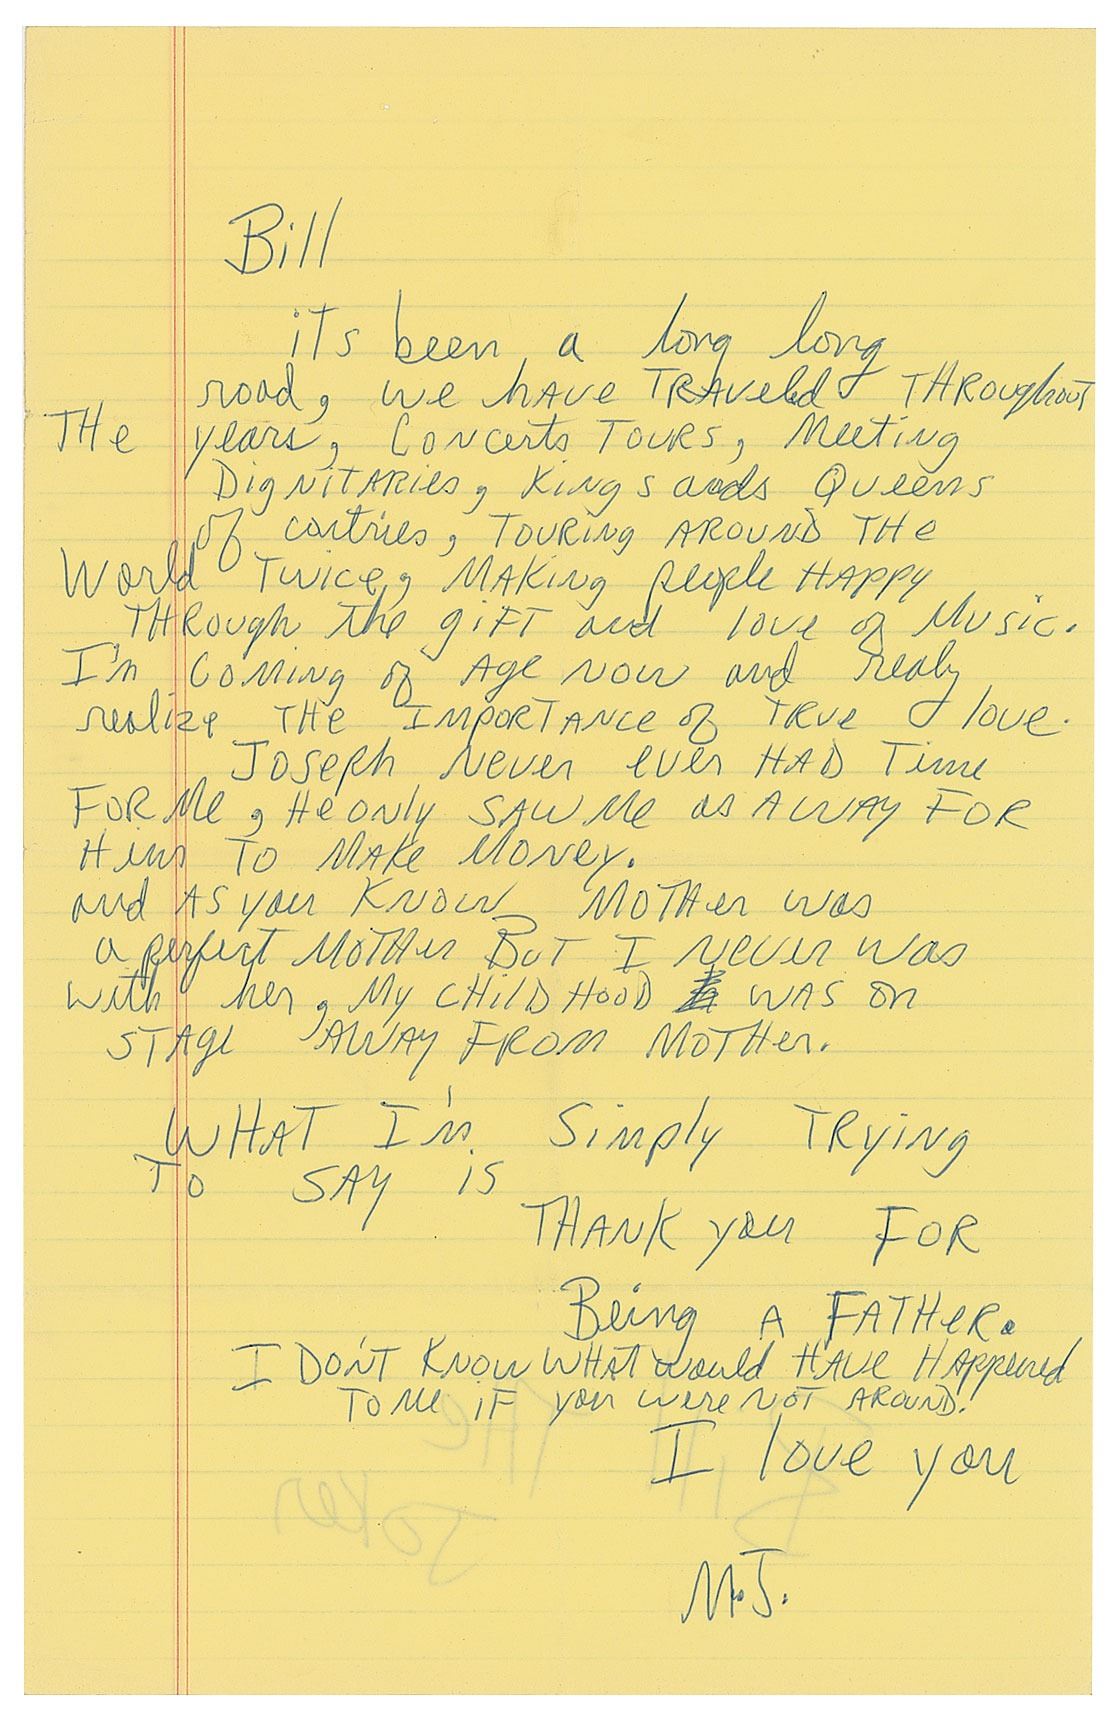 Bill
iTs been a long long
road, we hAve TRAveled THRoughouT
THe years, ConcerTs TOuRs, MeeTing
DigNiTARies, Kings ands Queens
of contries, TOuRing AROUND THe
World Twice, MAKing people HAppy
THRough The gifT and love of Music.
I'm Coming of Age now and realy
realize THe IMpORTANce of TRue love.
Joseph Never ever HAD Time
FOR Me, He only SAW Me as A WAY FOR
Him TO MAKe Money.
and AS you Know MOTHer was
a perfect MoTHer BuT I never was
with her, My CHilDHOOD WAS on
STAge AWAY FROM MOTHer.
WHAT I'm Simply TRying
TO SAY iS
THANK you FOR
Being A FATHeR.
I DON'T Know WHAT would HAve HAppened
TO Me iF you were noT AROuND.
I love you
M.J.
Bill THe
Joker